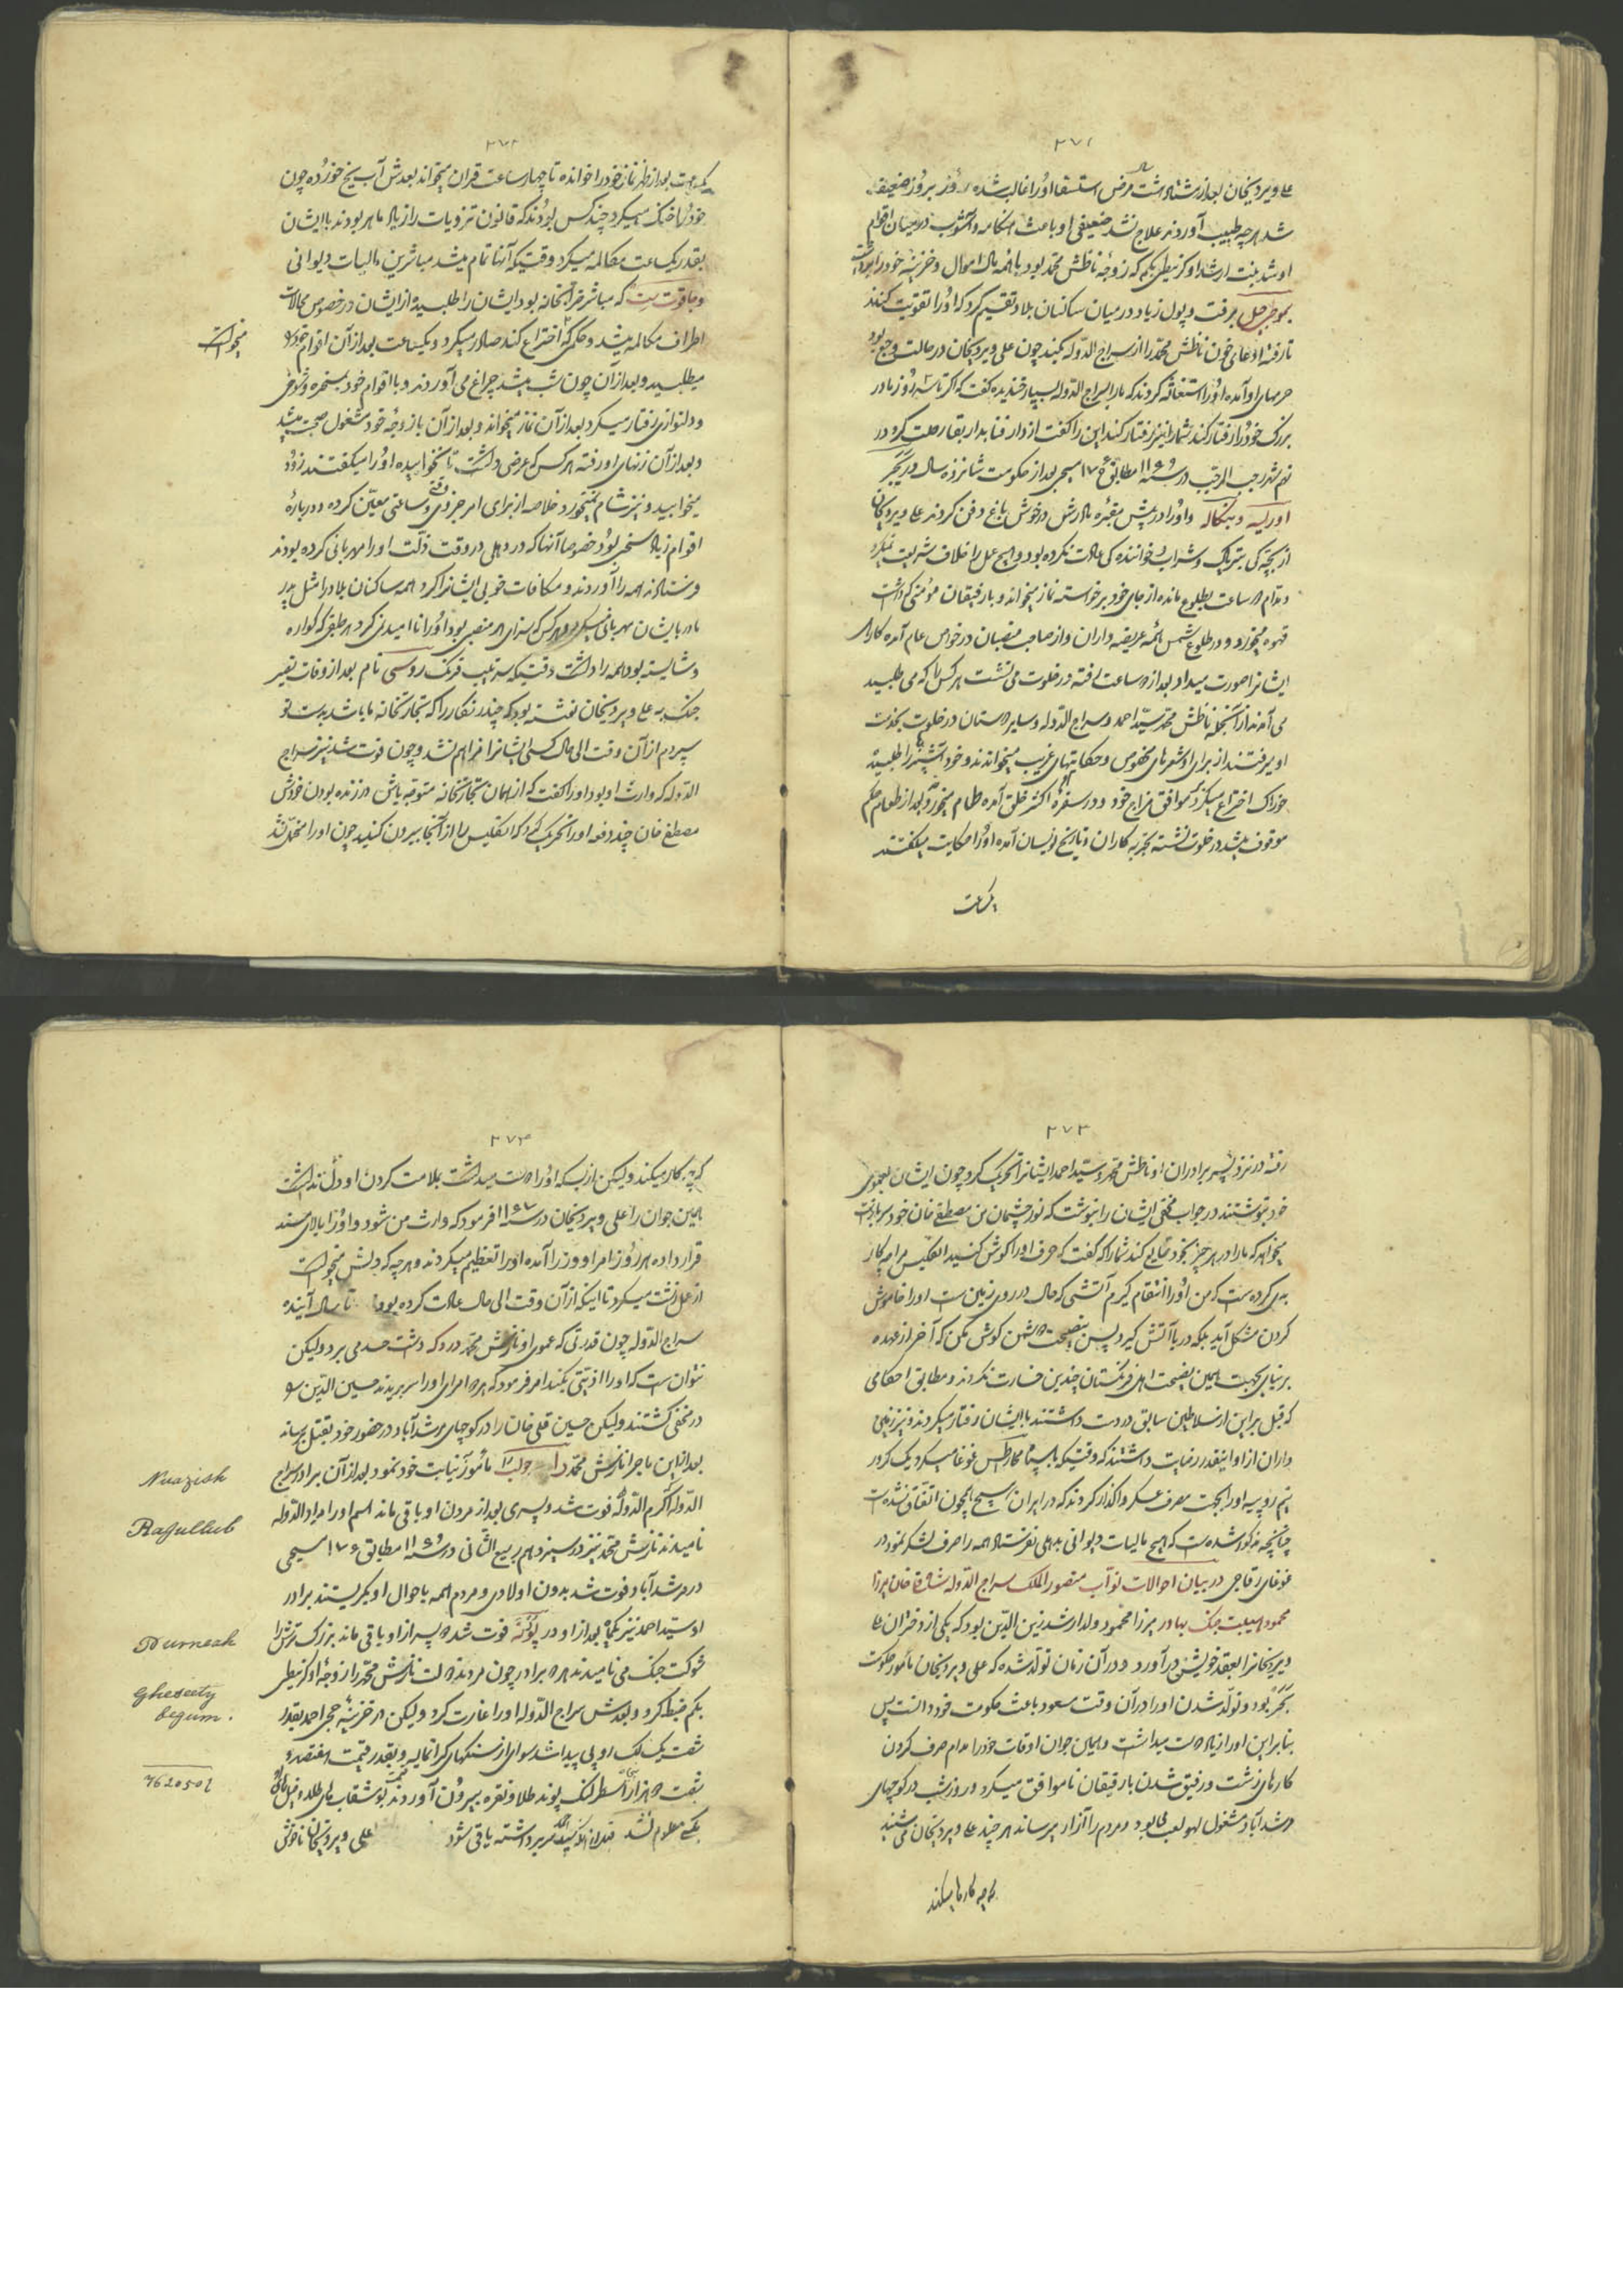 ۲۷۱
علی ویردیخان بعد از هشتاد مرض استسقا اورا غالب شده روز بروز ضعیف
شد هرچه طبیب آوردند علاج نشد ضعیفی او باعث هنگامه و آشوب درمیان اقوام
او شد بنت ارشد او کزیطی بکم که زوجهٔ ناظش محمد بود با همه مال اموال و خزینه خود را برداشت
بموطی جیل برفت و پول زیاد در میان ساکنان بلاد تقسیم کرد که اورا تقویت کنند
تا رفته ادعای خون ناظش محمد را از سراج الدوله بکند چون علی ویردیخان در حالت وجع بود
حرمهای او آمده اورا استغاثه کردند که مارا بسراج الدوله بسپار خندیده گفت که اگر تا سه روز با مادر
بزرگ خود را رفتار کند شما را نیز رفتار کند این را گفت از دار فنا بدار بقا رحلت کرد در
نهم شهر رجب المرجب در سنه ۱۱۶۹ مطابق ۱۷۵۶ مسیحی بعد از حکومت شانزده سال در
اوریسه و بنگاله و اورا در پیش مقبره مادرش در خوش باغ دفن کردند علی ویردیخان
از بچگی بتریاک و شراب و خواننده کی عادت نکرده بود و هیچ عمل را خلاف شریعت نمیکرد
و مدام دو ساعت بطلوع مانده از جای خود برخواسته نماز میخواند و با رفیقان مؤمنی که داشت
قهوه میخورد و در طلوع شمس همه عریضه داران و از صاحب منصبان در خواص عام آمده کارهای
ایشانرا صورت میداد بعد از دو ساعت رفته در خلوت می نشست هر کس را که می طلبید
می آمدند از آنجمله ناظش محمد سید احمد و سراج الدوله و سایر دوستان در خلوت بخدمت
او میرفتند از برای او شعرهای مخصوص و حکایتهای غریب میخواندند و خود آشپز را طلبیده
خوراک اختراع میکرد موافق مزاج خود و در سفره او اکثر خلق آمده طعام میخورد و بعد از طعام حکم
موقوف میشد در خلوت نشسته تجربه کاران و تاریخ نویسان آمده اورا حکایت میگفتند
یکساعت
۲۷۲
یکساعت بعد از ظهر نماز خود را خوانده تا چهار ساعت قران میخواند بعدش آب یخ خورده چون
خود را خنک میکرد چند کس بودند که قانون تزویات را زیاد ماهر بودند با ایشان
بقدر یکساعت مکالمه میکرد وقتیکه آنها تمام میشد مباشرین مالیات دیوانی
و جاقوت سیت که مباشر قرانخانه بود ایشان را طلبیده از ایشان در خصوص محالات
اطراف مکالمه میشد و حکمی که اختراع کند صادر میکرد و یکساعت بعد از آن اقوام خود را
میخواست
میطلبید و بعد از آن چون شب میشد چراغ می آوردند و با اقوام خود بمسخره و شوخی
و دلنوازی رفتار میکرد بعد از آن نماز میخواند و بعد از آن با زوجهٔ خود مشغول صحبت میشد
و بعد از آن زنهای او رفته هر کس که عرض داشت تا نخوابیده اورا میگفتند زود
میخوابید و نیز شام نمیخورد خلاصه از برای امر جزوی وقتی و ساعتی معین کرده و دربارهٔ
اقوام زیاد سخی بود خصوصا آنها که در دهلی در وقت ذلت اورا مهربانی کرده بودند
فرستاده همه را آوردند و مکافات خوبی ایشانرا کرد و همه ساکنان بلاد را مثل پدر
مادر با ایشان مهربانی میکرد و هر کس که سزای هر منصبی بود اورا نا امیدی نکرد هر طبقی که کواره
و شایسته بود همه را داشت وقتیکه سرتیپ فرنگ روسی نام بعد از وفات تغیر
جنک به علی ویردیخان نوشته بود که چندر نکار را که تجارتخانه ما باشد بدست تو
سپردم از آن وقت الی حال کسی ایشانرا مزاحم نشد و چون فوت شد نیز سراج
الدوله که وارث او بود اورا گفت که از همان تجارتخانه متوجه باش در زنده بودن خودش
مصطفی خان چند دفعه اورا تحریک کرد که انکلیس را از آنجا بیرون کنید چون اورا متحمل نشد
۲۷۳
رفته در نزد پسر برادران او ناظش محمد و سید احمد ایشانرا تحریک کرد چون ایشان بعموی
خود نوشتند در جواب مخفی ایشان را بنوشت که نور چشمان من مصطفی خان خود سرباز است
میخواهد که ما را در هر چیز بخود تابع کند شما را که گفت که حرف اورا گوش کنید انکلیس مرا چه کار
بدی کرده است که من اورا انتقام گیرم آتشی که حال در روی زمین است اورا خاموش
کردن مشکل آید بلکه دریا آتش گیرد پس بنصیحت دشمن گوش مکن که آخر از عهده
بر نیایی بجهت همین نصیحت اهل فرنگستان چندین خسارت نکردند و مطابق احکامی
که قبل بر این از سلاطین سابق در دست داشتند با ایشان رفتار میکردند و نیز زمین
داران از او اینقدر رضایت داشتند که وقتیکه با سپاه مکارطس غوغا میکرد یک کرور
نیم روپیه اورا بجهت مصرف عسکر واگذار کردند که در ایران هیچ همچون اتفاق نشده است
چنانچه مذکور شده است که هیچ مالیات دیوانی بدهلی نفرستاد همه را صرف لشکر نمود در
غوغای رقاجی در بیان احوالات نواب منصور الملک سراج الدوله شاه قلی خان میرزا
محمود هیبت جنک بهادر میرزا محمود ولد ارشد زین الدین بود که یکی از دختران علی
ویردیخانرا بعقد خویش درآورد و در آن زمان تولد شده که علی ویردیخان مأمور حکومت
بود و تولد شدن اورا در آن وقت مسعود باعث حکومت خود دانست پس
بنابر این اورا زیاد دوست میداشت و همان جوان اوقات خود را مدام صرف کردن
کارهای زشت و رفیق شدن با رفیقان ناموافق میکرد و روز شب در کوچهای
مرشدآباد مشغول لهو لعب ها بود و مردم را آزار میرساند هر چند علی ویردیخان می شنید
که چه کارها میکند
۲۷۴
که چه کار میکند ولیکن از بسکه اورا دوست میداشت بملامت کردن او دل نداشت
همین جوان را علی ویردیخان در سنه ۱۱۶۷ فرمود که وارث من شود و اورا بالای مسند
قرار داده هر روز امرا و وزرا آمده اورا تعظیم میکردند و هر چه که دلش میخواست
از عمل زشت میکرد تا اینکه از آن وقت الی حال عادت کرده بود تا سال آینده
سراج الدوله چون قدرتی که عموی او نازش محمد در دکه داشت حسد می برد ولیکن
نتوانست که اورا اذیتی بکند امر فرمود که هر دو امرای اورا سر بریدند حسین الدین
در مخفی کشتند ولیکن حسین قلی خان را در کوچهای مرشدآباد در حضور خود بقتل برسانه
بعد از این ماجرا نازش محمد را جولب را مأمور نیابت خود نمود بعد از آن برادر سراج
Nuazish
الدوله اکرم الدوله فوت شد و پسری بعد از مردن او باقی ماند اسم اورا مراد الدوله
Ragullub
نامیدند نازش محمد نیز در سیزدهم ربیع الثانی در سنه ۱۱۶۹ مطابق ۱۷۵۶ مسیحی
در مرشدآباد فوت شد بدون اولادی و مردم همه باحوال او بگریستند برادر
او سید احمد نیز یکماه بعد از او در پورنه فوت شد دو پسر از او باقی ماند بزرگ ترش را
Purneah
شوکت جنک می نامیدند هر دو برادر چون مردند دولت نازش محمد را زوجهٔ او کزیطی
Gheseety
بکم ضبط کرد و بعدش سراج الدوله اورا غارت کرد ولیکن در خزینه حجی احمد بقدر
begum.
شصت یک لک روپی پیدا شد سوای از سنگهای گرانمایه و بقدر قیمت هفتصد و
شصت دو هزار اسطرلنک پوند طلا و نقره بیرون آوردند
762050l
بکسی معلوم نشد باقی شود علی ویردیخان ناخوش